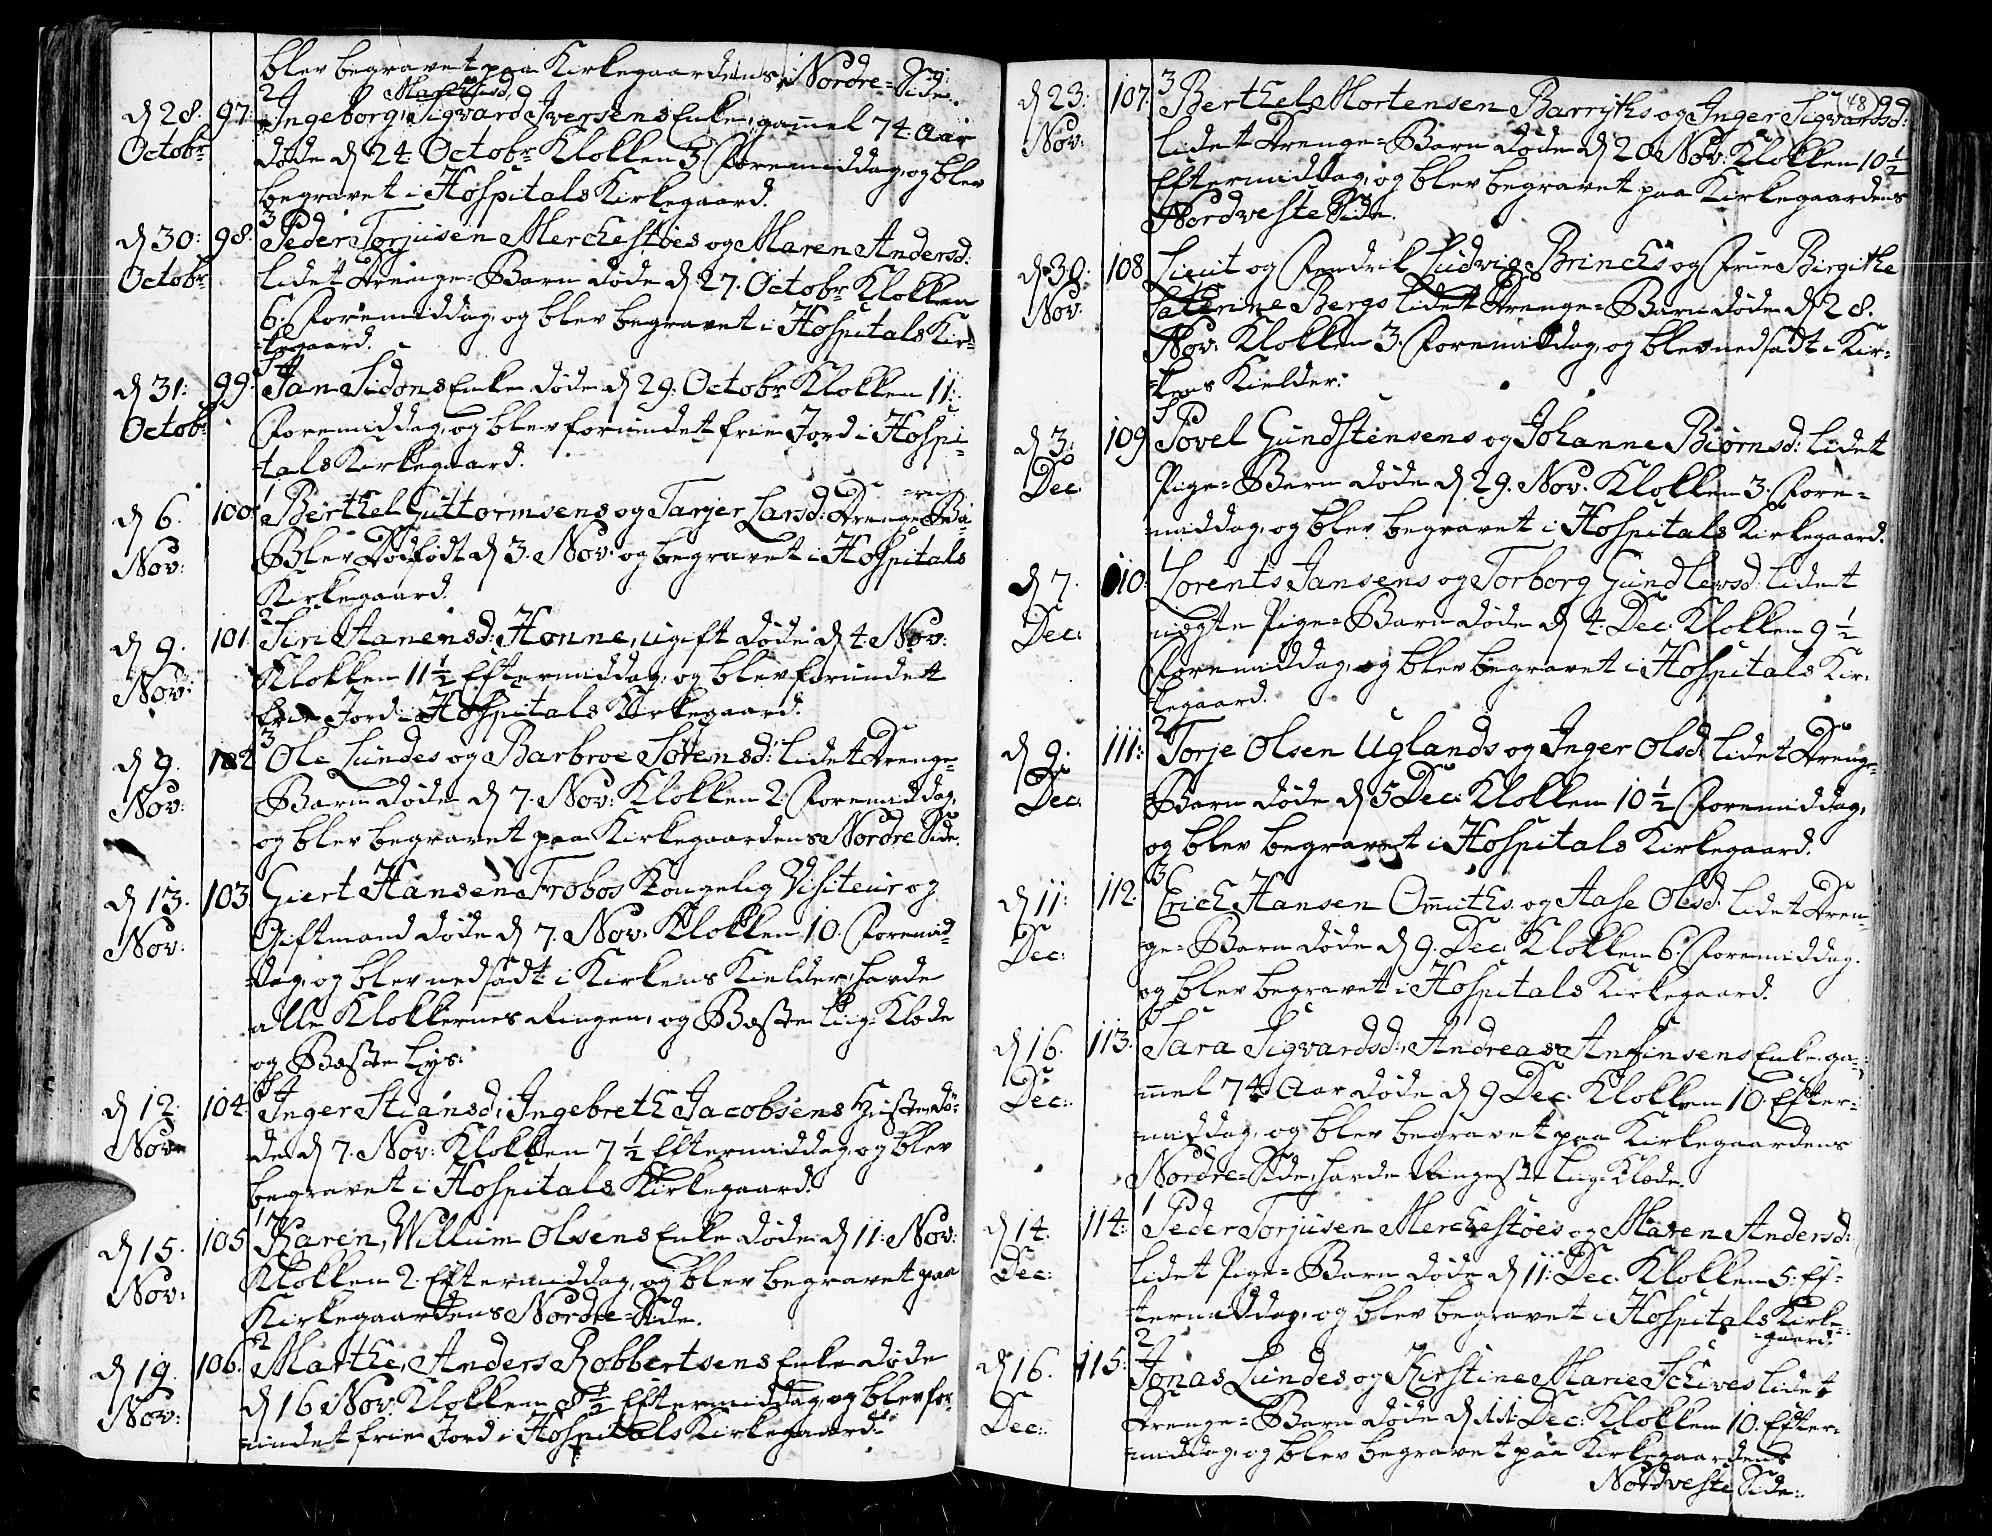 blev begravet paa Kirkegaardens Nordre=Side.
d 28. 97. 2 Ingeborg, Sigvard Iversens Enke, gam̄el 74 Aar
Octobr døde d 24 Octobr Klokken 3 Formiddag, og blev
begravet i Hospitals Kirkegaard.
d 30: 98. 3 Peder Torjusen Merckestøes og Maren Andersd:
Octobr lidet Drenge=Barn døde d 27. Octobr Klokken
6. Foremiddag, og blev begravet i Hospitals Kir=
=kegaard.
d 31: 99. Jan Sidons Enke døde d 29. Octobr Klokken 11:
Octobr Foremiddag, og blev forundet frie Jord i Hospi=
=tals Kirkegaard.
d 6. 100. 1 Berthel Guttormsens og Tarjer Larsd: Drenge=Ba
=rn
Nov: Blev Dødfødt d 3. Nov: og begravet i Hospitals
Kirkegaard.
d 9. 101. 2 Siri Aanensd: Hønne, ugift døde d 4. Nov:
Nov: Klokken 11 ½ Eftermiddag, og blev forundet
frie Jord i Hospitals Kirkegaard.
d 9. 102 3 Ole Lundes og Barbroe Sørensd: lidet Drenge=
Nov: Barn døde d 7. Nov: Klokken 2. Foremiddag,
og blev begravet paa Kirkegaardens Nordre Side.
d 13. 103. Giert Hansen Frobos Kongelig Visiteur og
Nov: Giftmand døde d 7. Nov: Klokken 10. Foremid=
=dag, og blev nedsadt i Kirkens Kielder, havde
alle Klokkernes Ringen, og Beste Liig=Klæde
og Beste Lys.
d 12. 104. Inger Stiansd: Ingebreth Jacobsens Hustr dø=
Nov: de d 7. Nov: Klokken 7 ½ Eftermiddag, og blev
begravet i Hospitals Kirkegaard.
d 15. 105 1 Karen, Willum Olsens Enke døde d 11: Nov:
Nov: Klokken 2. Eftermiddag, og blev begravet paa
Kirkegaardens Nordre=Side.
d 19. 106. 2 Marthe, Anders Robbertsens Enke døde
Nov: d 16 Nov: Klokken 8½ Eftermiddag, og blev for=
=undet frie Jord i Hospitals Kirkegaard.
(48) 99
d 23: 107. 3 Berthel Mortensen Barryks og Inger Sigvardsd:
Nov: lidet Drenge=Barn døde d 20 Nov: Klokken 10 ½
Eftermiddag, og blev begravet paa Kirkegaardens
Nordveste Side.
d 30. 108 Lieut og Fendrik Ludvig Brinchs og Frue Birgithe
Nov: Catrine Bergs lidet Drenge=Barn døde d 28.
Nov: Klokken 3. Foremiddag, og blev nedsadt i Kir=
=kens Kielder.
d 3: 109 Povel Gundstensens og Johanne Biørnsd: lidet
Dec. Pige=Barn døde d 29. Nov: Klokken 3. Fore=
middag, og blev begravet i Hospitals Kirkegaard.
d 7. 110. 1 Lorents Jansens og Torborg Gundlevsd: lidet
Dec: uægte Pige=Barn døde d 4. Dec: Klokken 9 ½
Foremiddag, og blev begravet i Hospitals Kir=
=kegaard.
d 9. 111: 2 Torje Olsen Uglands og Inger Olsd: lidet Drenge=
Dec: Barn døde d 5 Dec: Klokken 10 ½ Foremiddag,
og blev begravet i Hospitals Kirkegaard.
d 11: 112. 3 Erich Hansen Om̄uths og Aase Olsd: lidet Dren=
Dec: ge=Barn døde d 9. Dec: Klokken 6. Foremiddag.
og blev begravet i Hospitals Kirkegaard.
d 16. 113. Sara Sigvardsd: Andreas Anfinsens Enke, ga=
Dec: m̄el 74 Aar døde d 9 Dec: Klokken 10. Efter=
middag, og blev begravet paa Kirkegaardens
Nordre=Side, havde Ringeste Liig=Klæde.
d 14. 114: 1 Peder Torjusen Merckestøes og Maren Andersd:
Dec: lidet Pige=Barn døde d 11: Dec. Klokken 5. Ef=
termiddag, og blev begravet i Hospitals Kirke=
=gaard.
d 16. 115. 2 Jonas Lundes og Kirstine Marie Schives lidet
Dec: Drenge=Barn døde d 11 Dec: Klokken 10. Efter=
=middag, og blev begravet paa Kirkegaardens
Nordveste Side.